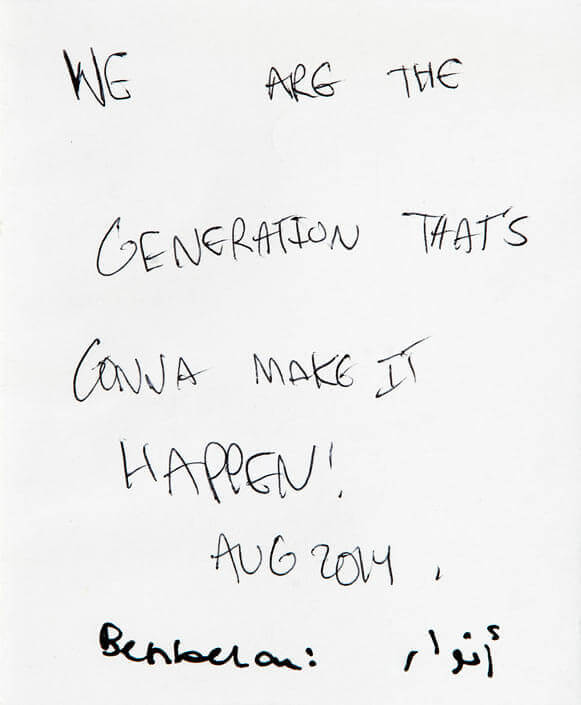 WE ARE THE
GENERATION THAT'S
GONNA MAKE IT
HAPPEN!
AUG 2014.
أنوار